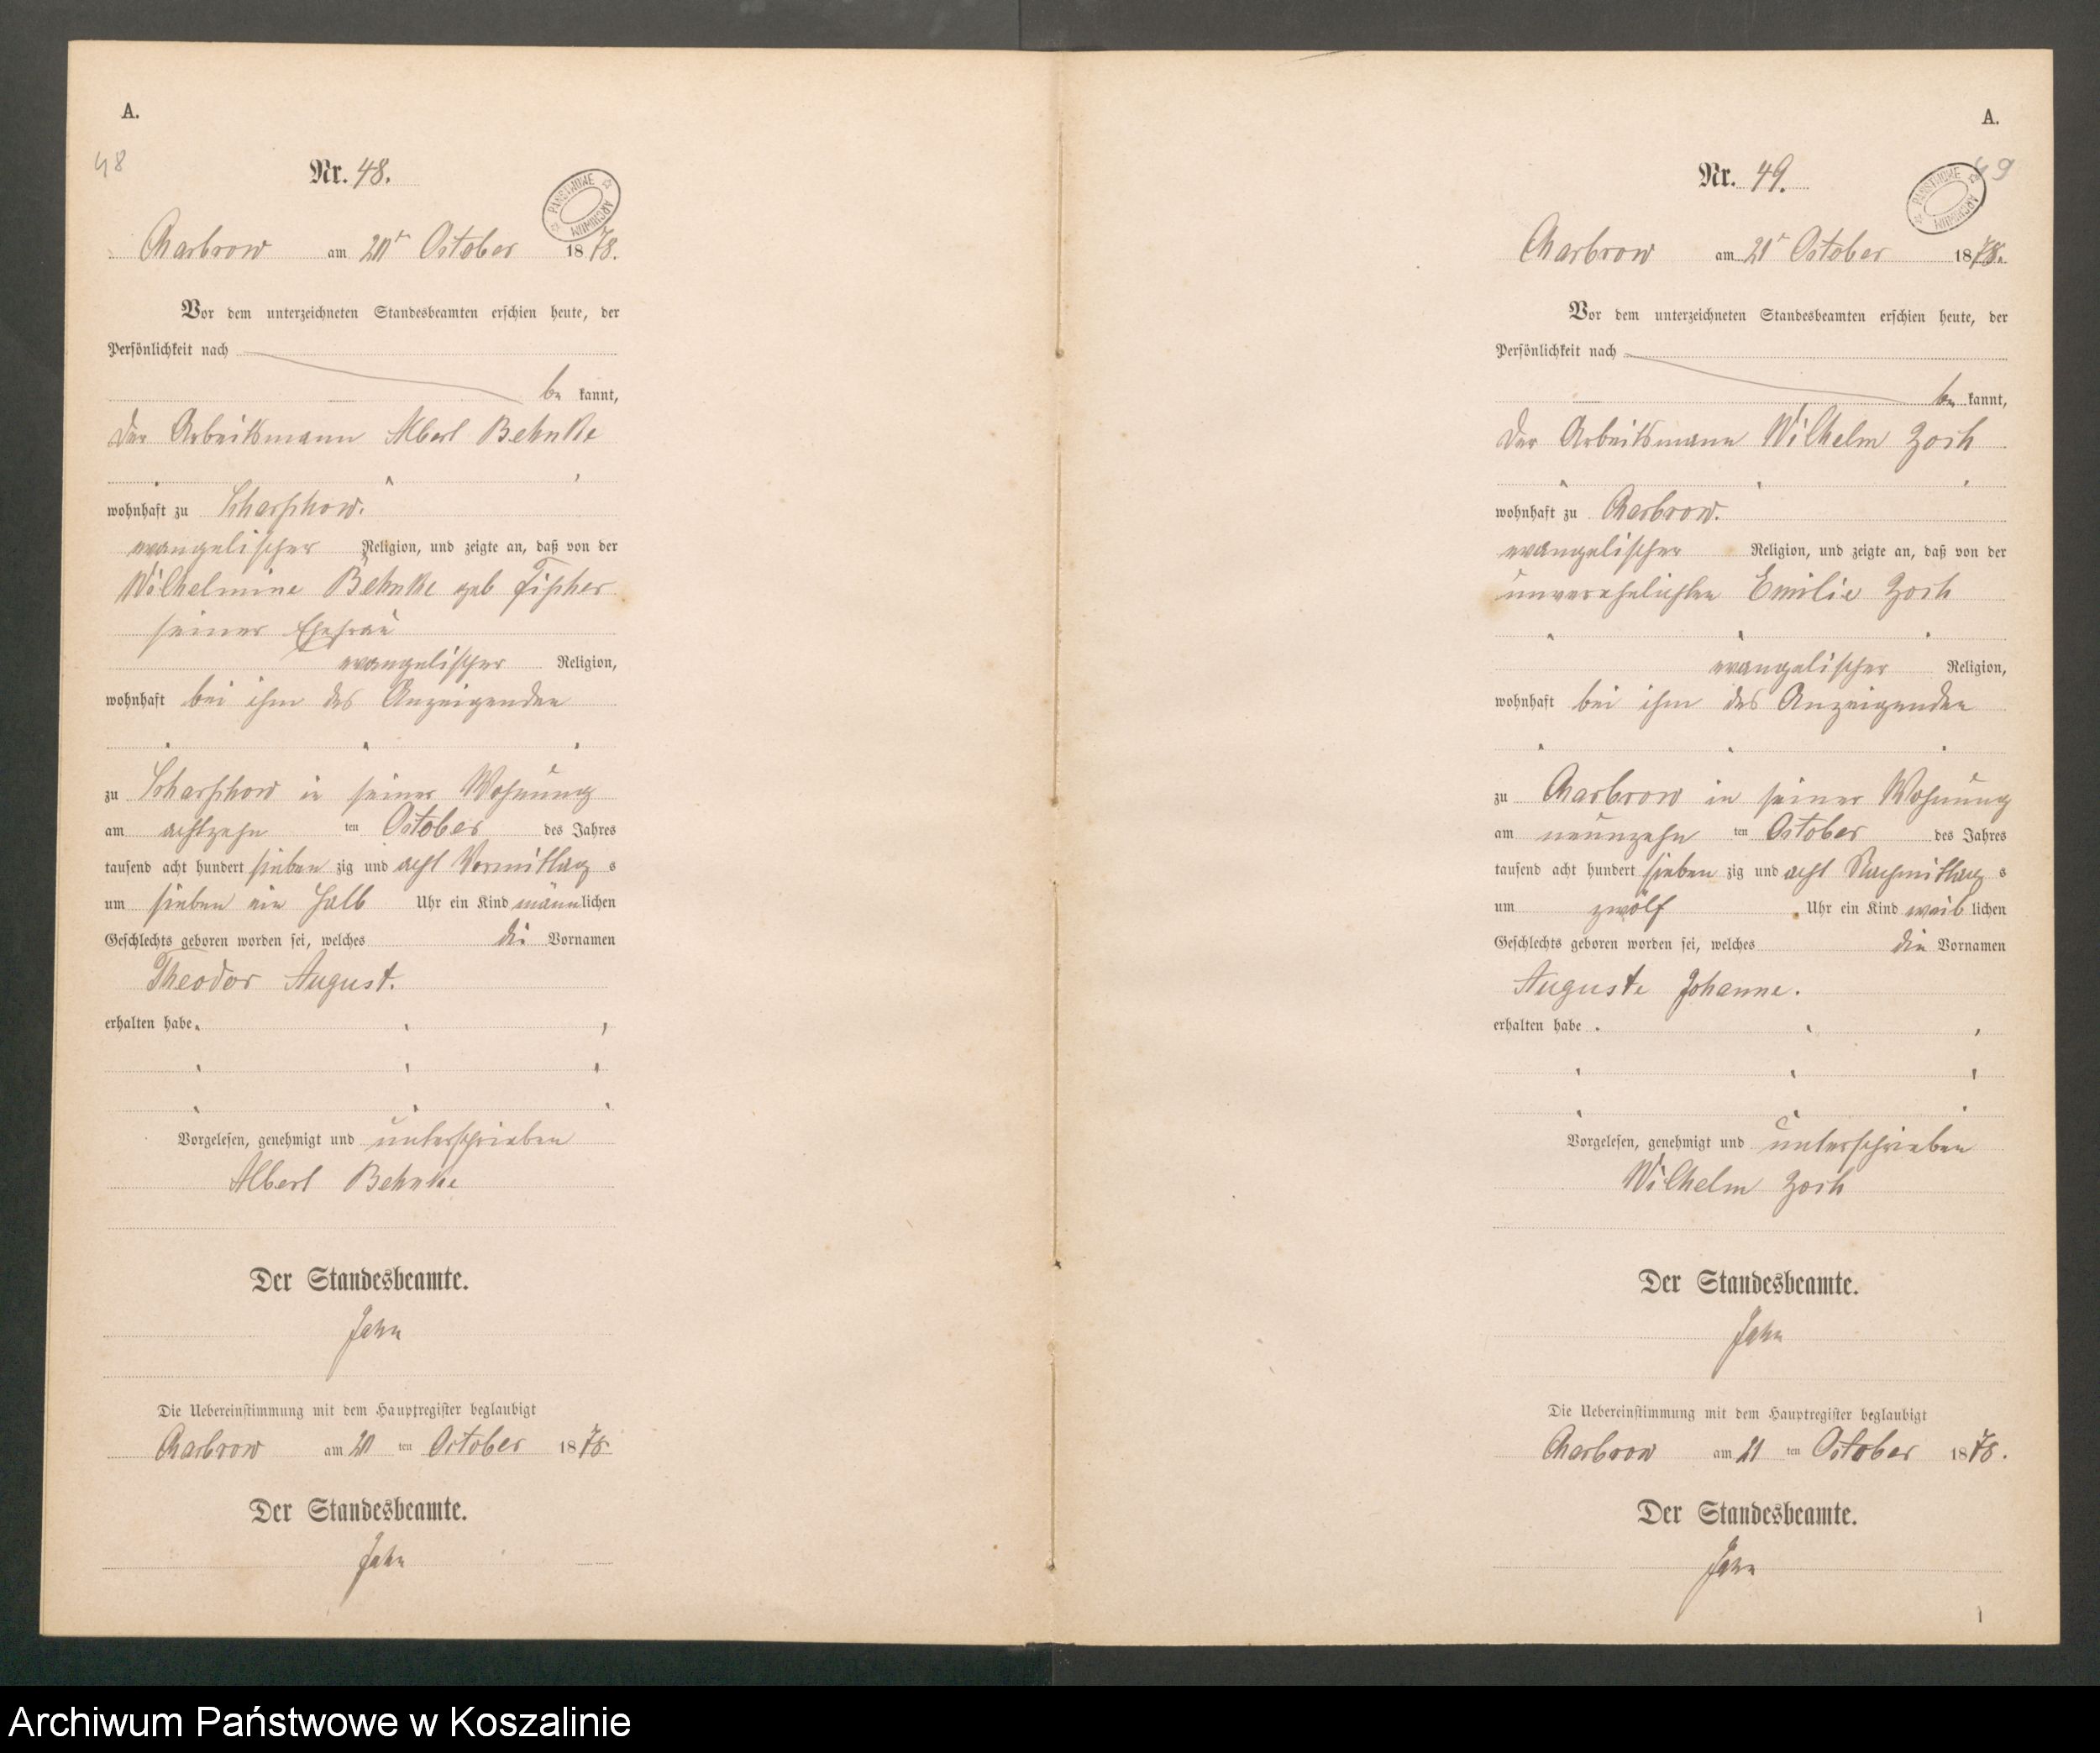 A.
48
Nr. 48.
PAŃSTWOWE ARCHIWUM
Charbrow am 20t October 1878.
Vor dem unterzeichneten Standesbeamten erschien heute, der
Persönlichkeit nach
be kannt,
der Arbeitsmann Albert Behnke
wohnhaft zu Scharschow.
evangelischer Religion, und zeigte an, daß von der
Wilhelmine Behnke geb Fischer
seiner Ehefrau
evangelischer Religion,
wohnhaft bei ihm des Anzeigenden
zu Scharschow in seiner Wohnung
am achtzehn ten October des Jahres
tausend acht hundert sieben zig und acht Vormittag s
um sieben ein halb Uhr ein Kind männlichen
Geschlechts geboren worden sei, welches die Vornamen
Theodor August.
erhalten habe.
Vorgelesen, genehmigt und unterschrieben
Albert Behnke
Der Standesbeamte.
Jahn
Die Uebereinstimmung mit dem Hauptregister beglaubigt
Charbrow am 20 ten October 1878
Der Standesbeamte.
Jahn
A.
49
Nr. 49.
PAŃSTWOWE ARCHIWUM
Charbrow am 21t October 1878.
Vor dem unterzeichneten Standesbeamten erschien heute, der
Persönlichkeit nach
be kannt,
der Arbeitsmann Wilhelm Zoch
wohnhaft zu Charbrow.
evangelischer Religion, und zeigte an, daß von der
unverehelichten Emilie Zoch
evangelischer Religion,
wohnhaft bei ihm des Anzeigenden
zu Charbrow in seiner Wohnung
am neunzehn ten October des Jahres
tausend acht hundert sieben zig und acht Nachmittag s
um zwölf Uhr ein Kind weib lichen
Geschlechts geboren worden sei, welches die Vornamen
Auguste Johanne.
erhalten habe.
Vorgelesen, genehmigt und unterschrieben
Wilhelm Zoch
Der Standesbeamte.
Jahn
Die Uebereinstimmung mit dem Hauptregister beglaubigt
Charbrow am 21 ten October 1878.
Der Standesbeamte.
Jahn
Archiwum Państwowe w Koszalinie